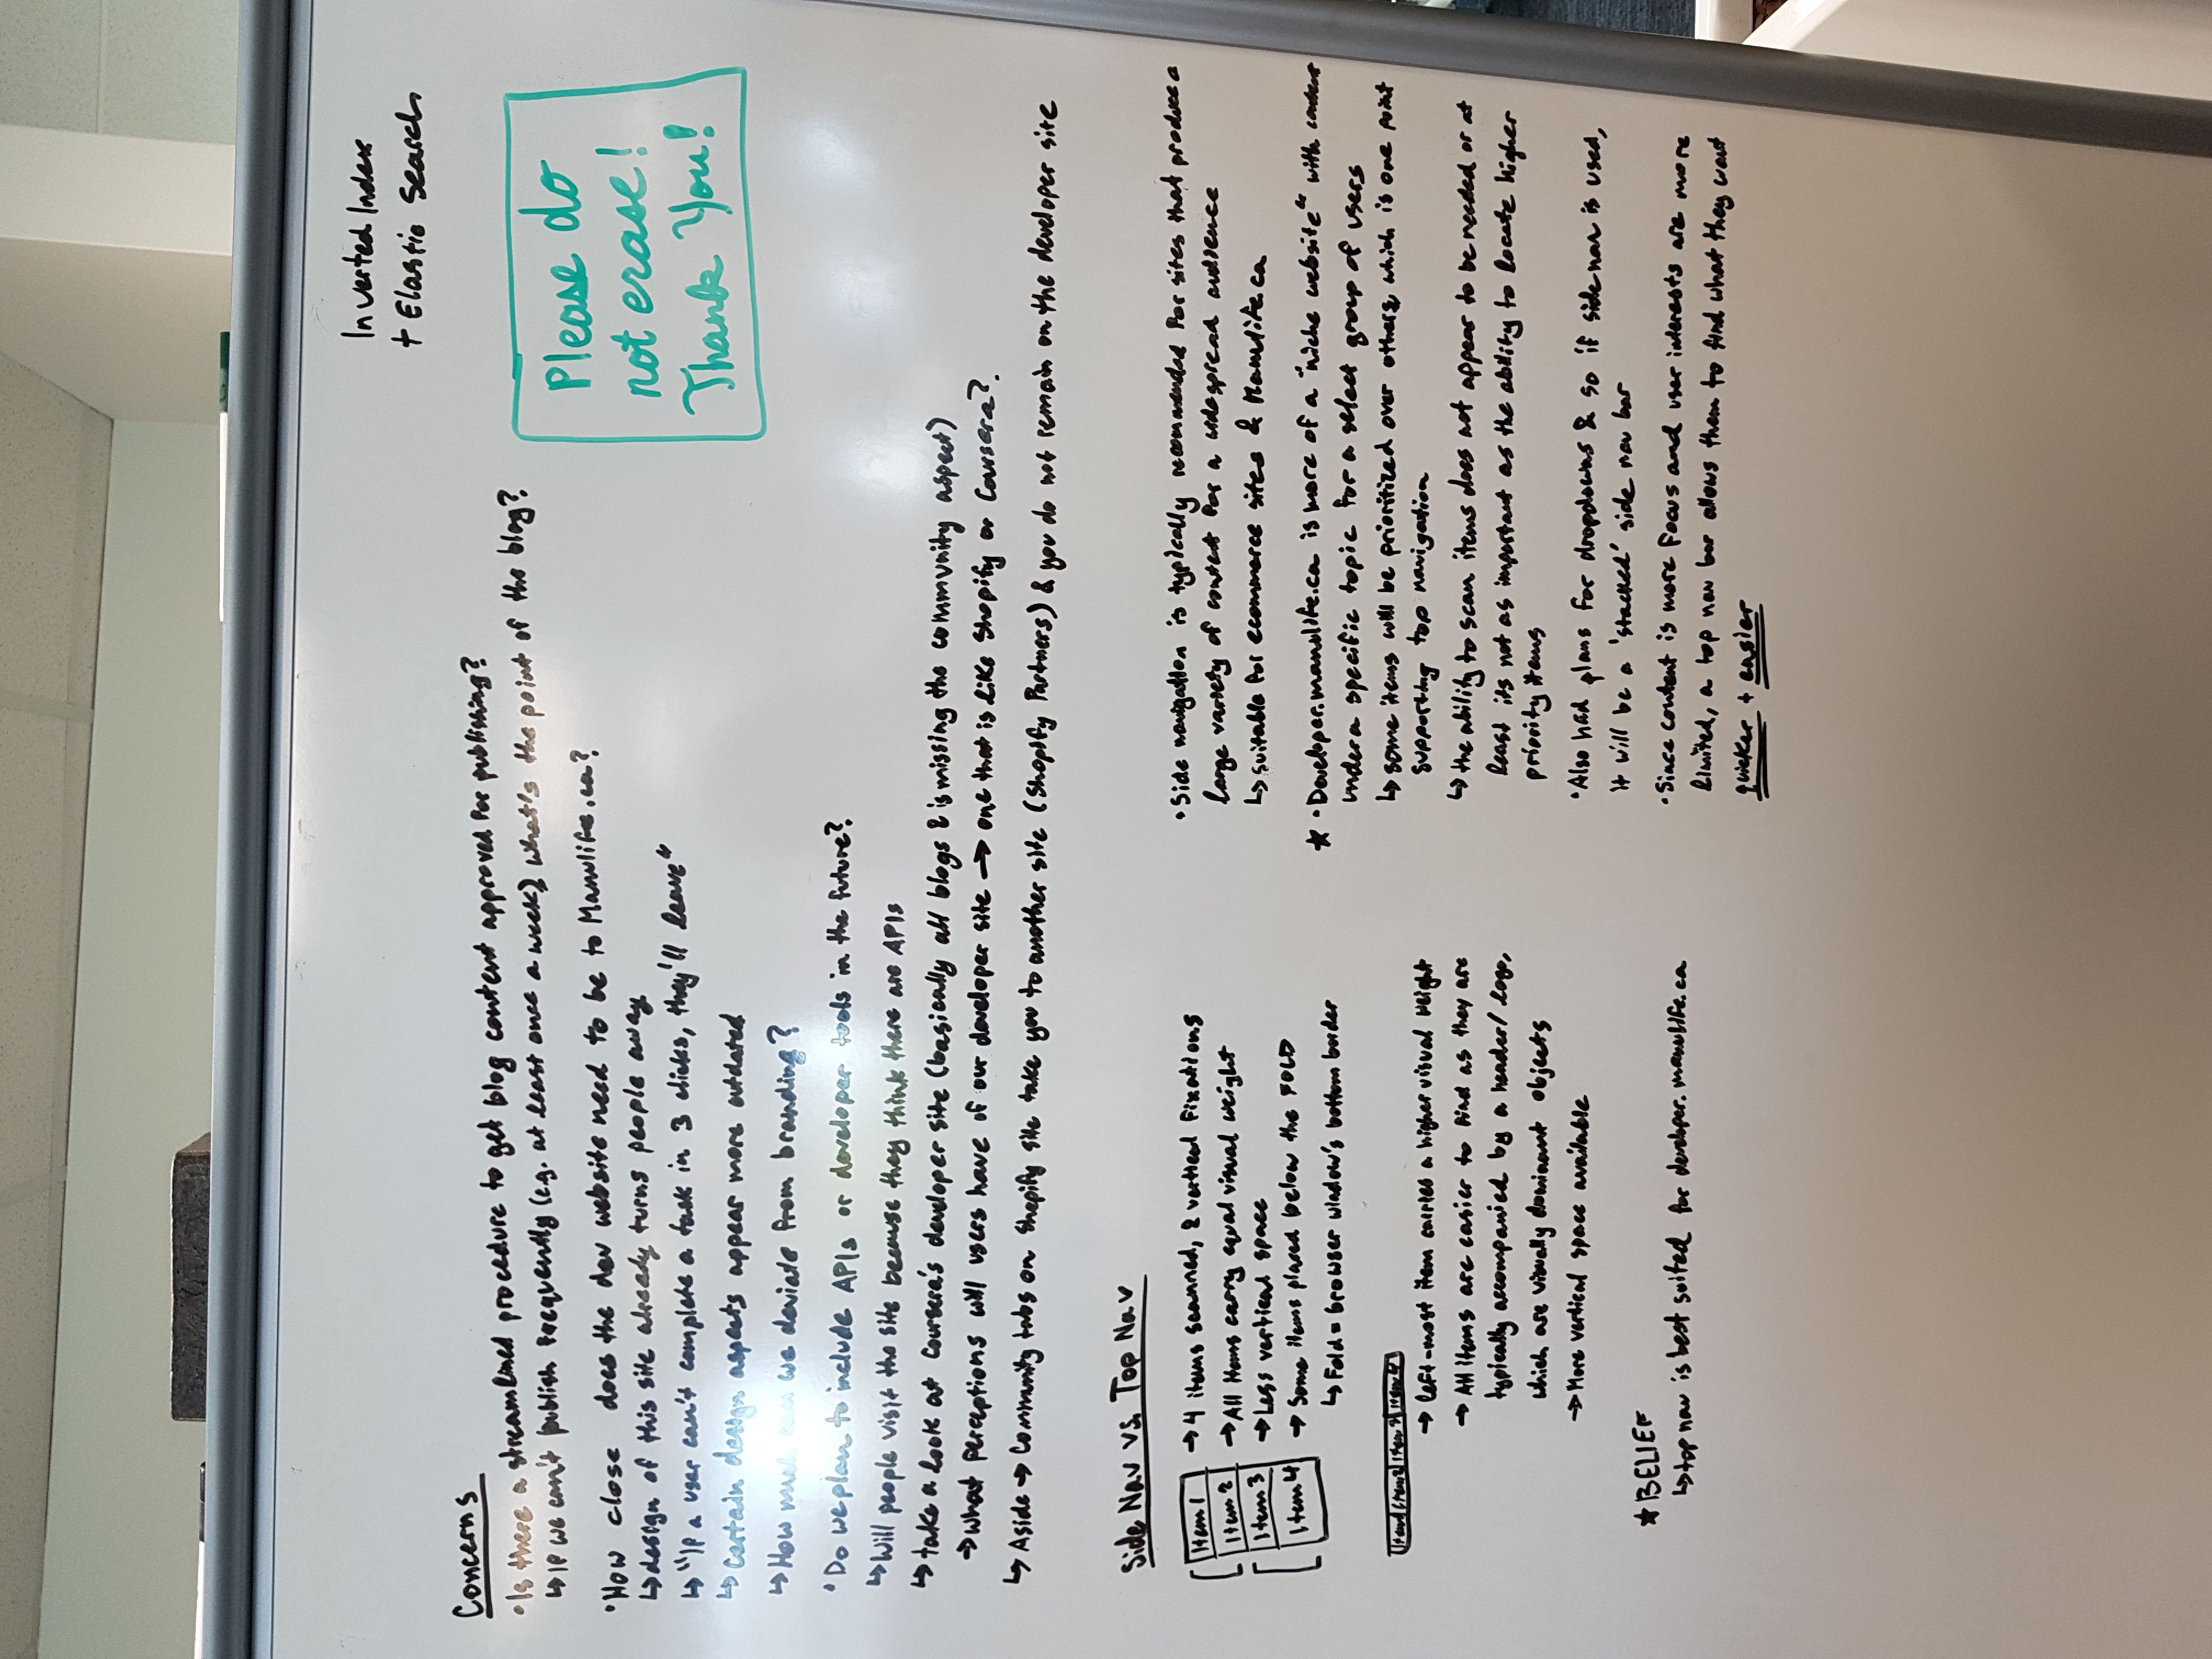 Inverted Index
+ Elastic Search
Concerns
• Is there a streamlined procedure to get blog content approved for publishing?
↳ If we can't publish frequently (e.g. at least once a week), what's the point of the blog?
• How close does the dev website need to be to Manulife.ca?
↳ design of this site already turns people away
↳ "If a user can't complete a task in 3 clicks, they'll leave"
↳ Certain design aspects appear more outdated
↳ How much can we deviate from branding?
• Do we plan to include APIs or developer tools in the future?
↳ Will people visit the site because they think there are APIs
↳ take a look at Coursera's developer site (basically all blogs & is missing the community aspect)
→ what perceptions will users have of our developer site → one that is like Shopify or Coursera?
↳ Aside → Community tabs on Shopify site take you to another site (Shopify Partners) & you do not remain on the developer site
Please do
not erase!
Thank You!
Side Nav vs. Top Nav
Item 1
Item 2
Item 3
Item 4
→ 4 items scanned, 2 vertical fixations
→ All items carry equal visual weight
→ Less vertical space
→ Some items placed below the FOLD
↳ Fold = browser window's bottom border
Item 1 Item 2 Item 3 Item 4
→ left-most item carries a higher visual weight
→ All items are easier to find as they are
typically accompanied by a header/logo,
which are visually dominant objects
→ More vertical space available
★ BELIEF
↳ top nav is best suited for developer.manulife.ca
• Side navigation is typically recommended for sites that produce a
large variety of content for a widespread audience
↳ suitable for ecommerce sites & Manulife.ca
★ • Developer.manulife.ca is more of a "niche website" with content
under a specific topic for a select group of users
↳ some items will be prioritized over others, which is one point
supporting top navigation
↳ the ability to scan items does not appear to be needed or at
least its not as important as the ability to locate higher
priority items
• Also had plans for dropdowns & so if side nav is used,
it will be a 'stacked' side nav bar
• Since content is more focus and user interests are more
limited, a top nav bar allows them to find what they want
quicker + easier